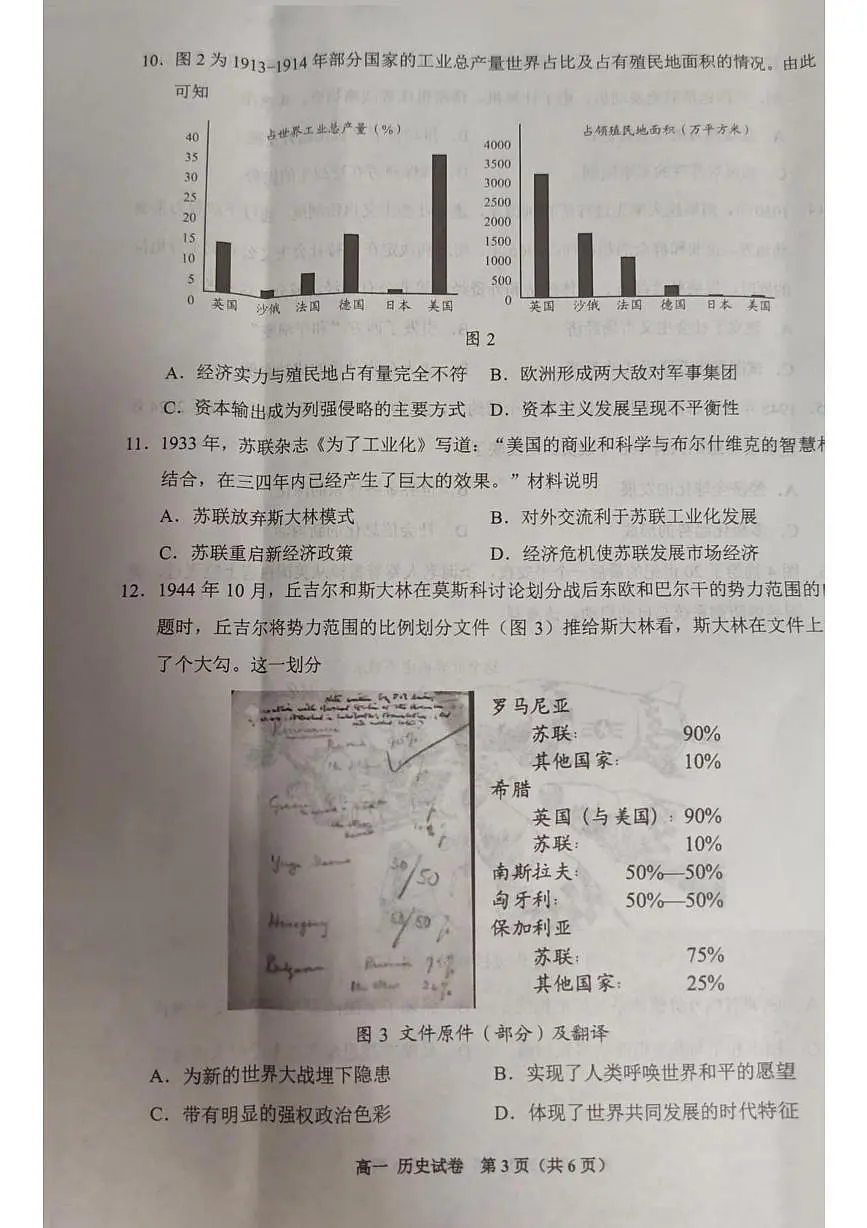 10. 图 2 为 1913-1914 年部分国家的工业总产量世界占比及占有殖民地面积的情况。由此
可知
占世界工业总产量(%)
40
35
30
25
20
15
10
5
0
英国 沙俄 法国 德国 日本 美国
占领殖民地面积(万平方米)
4000
3500
3000
2500
2000
1500
1000
500
0
英国 沙俄 法国 德国 日本 美国
图 2
A. 经济实力与殖民地占有量完全不符 B. 欧洲形成两大敌对军事集团
C. 资本输出成为列强侵略的主要方式 D. 资本主义发展呈现不平衡性
11. 1933 年,苏联杂志《为了工业化》写道:“美国的商业和科学与布尔什维克的智慧
结合,在三四年内已经产生了巨大的效果。”材料说明
A. 苏联放弃斯大林模式 B. 对外交流利于苏联工业化发展
C. 苏联重启新经济政策 D. 经济危机使苏联发展市场经济
12. 1944 年 10 月,丘吉尔和斯大林在莫斯科讨论划分战后东欧和巴尔干的势力范围的
题时,丘吉尔将势力范围的比例划分文件(图 3)推给斯大林看,斯大林在文件上
了个大勾。这一划分
50/50
50/50 %
罗马尼亚
苏联: 90%
其他国家: 10%
希腊
英国(与美国):90%
苏联: 10%
南斯拉夫: 50%—50%
匈牙利: 50%—50%
保加利亚
苏联: 75%
其他国家: 25%
图 3 文件原件(部分)及翻译
A. 为新的世界大战埋下隐患 B. 实现了人类呼唤世界和平的愿望
C. 带有明显的强权政治色彩 D. 体现了世界共同发展的时代特征
高一 历史试卷 第 3 页(共 6 页)